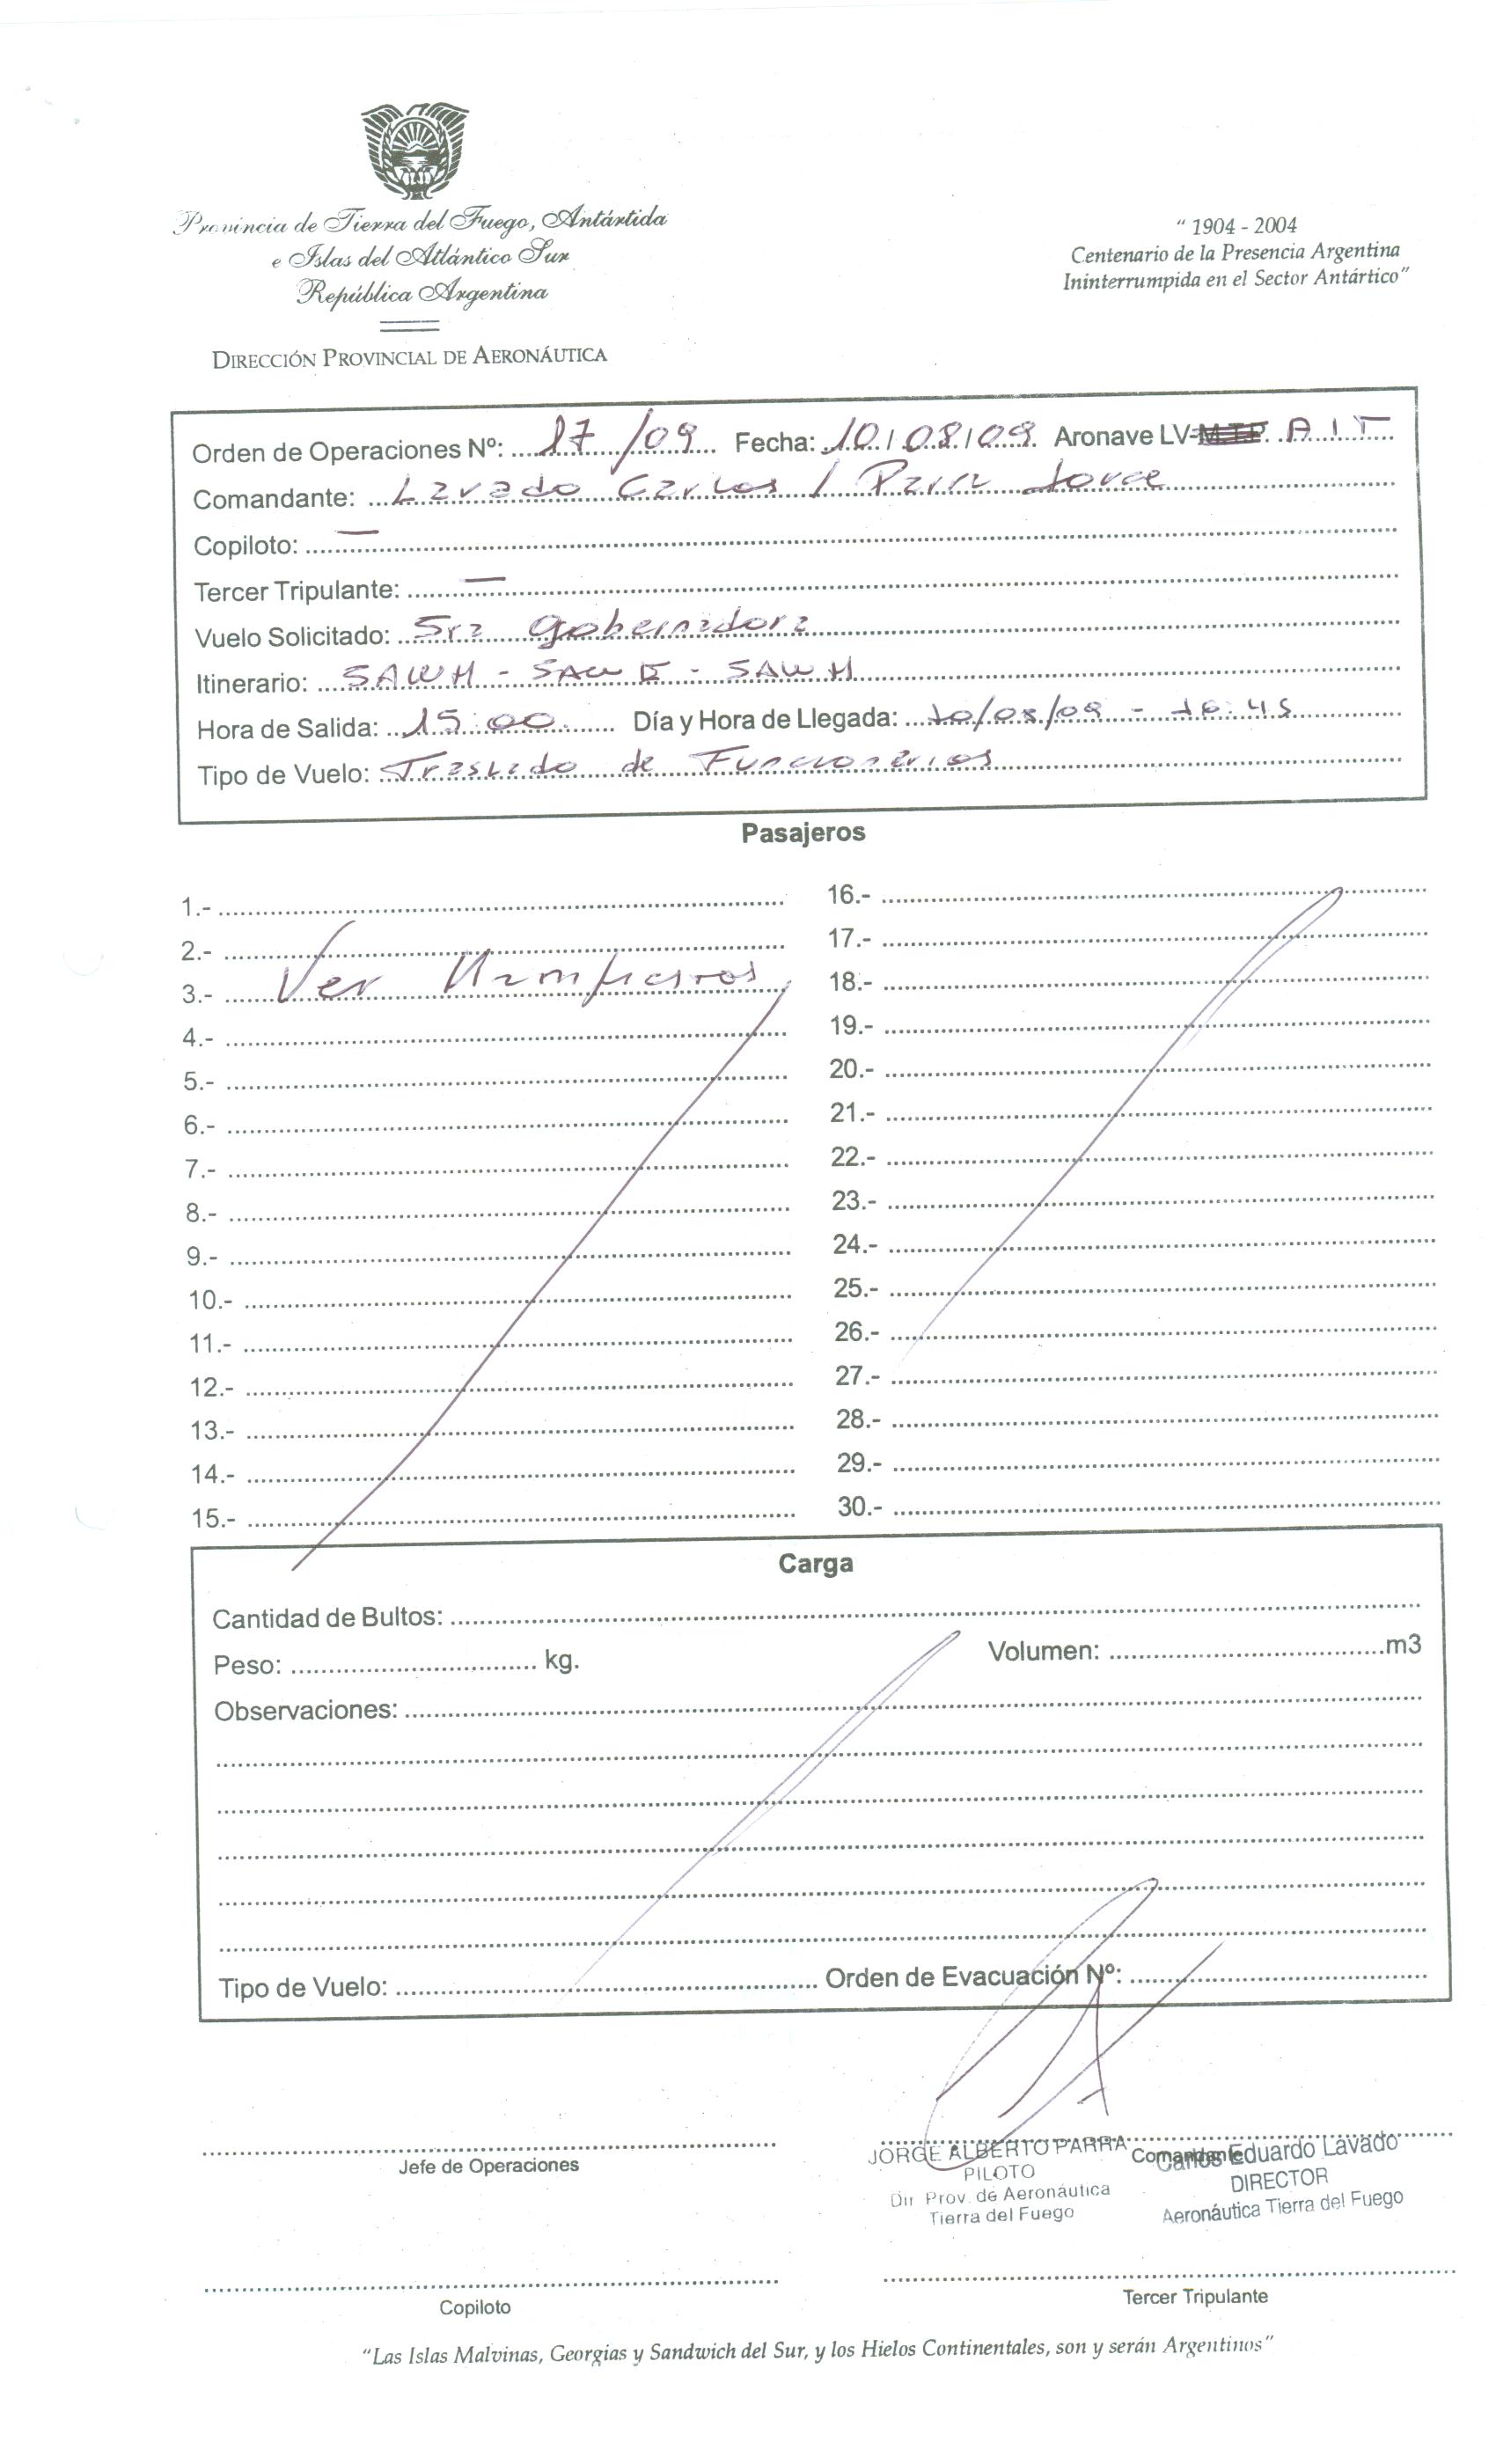 Provincia de Tierra del Fuego, Antártida
e Islas del Atlántico Sur
República Argentina
DIRECCIÓN PROVINCIAL DE AERONÁUTICA
" 1904 - 2004
Centenario de la Presencia Argentina
Ininterrumpida en el Sector Antártico"
Orden de Operaciones Nº: 17/09 Fecha: 10/08/09 Aronave LV- AIT
Comandante: Lavado Carlos / Parra Jorge
Copiloto: —
Tercer Tripulante: —
Vuelo Solicitado: Sra Gobernadora
Itinerario: SAWH - SAWE - SAWH
Hora de Salida: 15:00 Día y Hora de Llegada: 10/08/09 - 16:45
Tipo de Vuelo: Traslado de Funcionarios
Pasajeros
1.-
2.-
3.- Ver Manifiestos
4.-
5.-
6.-
7.-
8.-
9.-
10.-
11.-
12.-
13.-
14.-
15.-
16.-
17.-
18.-
19.-
20.-
21.-
22.-
23.-
24.-
25.-
26.-
27.-
28.-
29.-
30.-
Carga
Cantidad de Bultos:
Peso: kg. Volumen: m3
Observaciones:
Tipo de Vuelo: Orden de Evacuación Nº:
Jefe de Operaciones
Comandante
JORGE ALBERTO PARRA
PILOTO
Dir Prov. de Aeronáutica
Tierra del Fuego
Carlos Eduardo Lavado
DIRECTOR
Aeronáutica Tierra del Fuego
Copiloto
Tercer Tripulante
"Las Islas Malvinas, Georgias y Sandwich del Sur, y los Hielos Continentales, son y serán Argentinos"